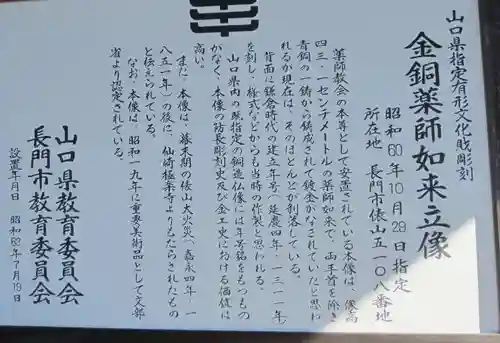 山口県指定有形文化財彫刻
金銅薬師如来立像
昭和60年10月29日指定
所在地　長門市俵山五一〇八番地
薬師教会の本尊として安置されている本像は、像高
四三・一センチメートルの薬師如来で、両手首を除き
青銅の一鋳から鋳成されて鍍金がなされていたと思わ
れるが現在は、そのほとんどが剥落している。
背面に鎌倉時代の建立年号（延慶四年・一三一一年）
を刻し、様式などからも当時の作製と思われる。
山口県内の既指定の銅造仏像には年号銘をもつもの
がなく、本像の防長彫刻史及び金工史における価値は
高い。
また、本像は、幕末期の俵山大火災（嘉永四年・一
八五一年）の後に、仙崎極楽寺よりもたらされたもの
と伝えられている。
なお、本像は、昭和一九年に重要美術品として文部
省より認定されている。
山口県教育委員会
長門市教育委員会
設置年月日　昭和62年7月19日